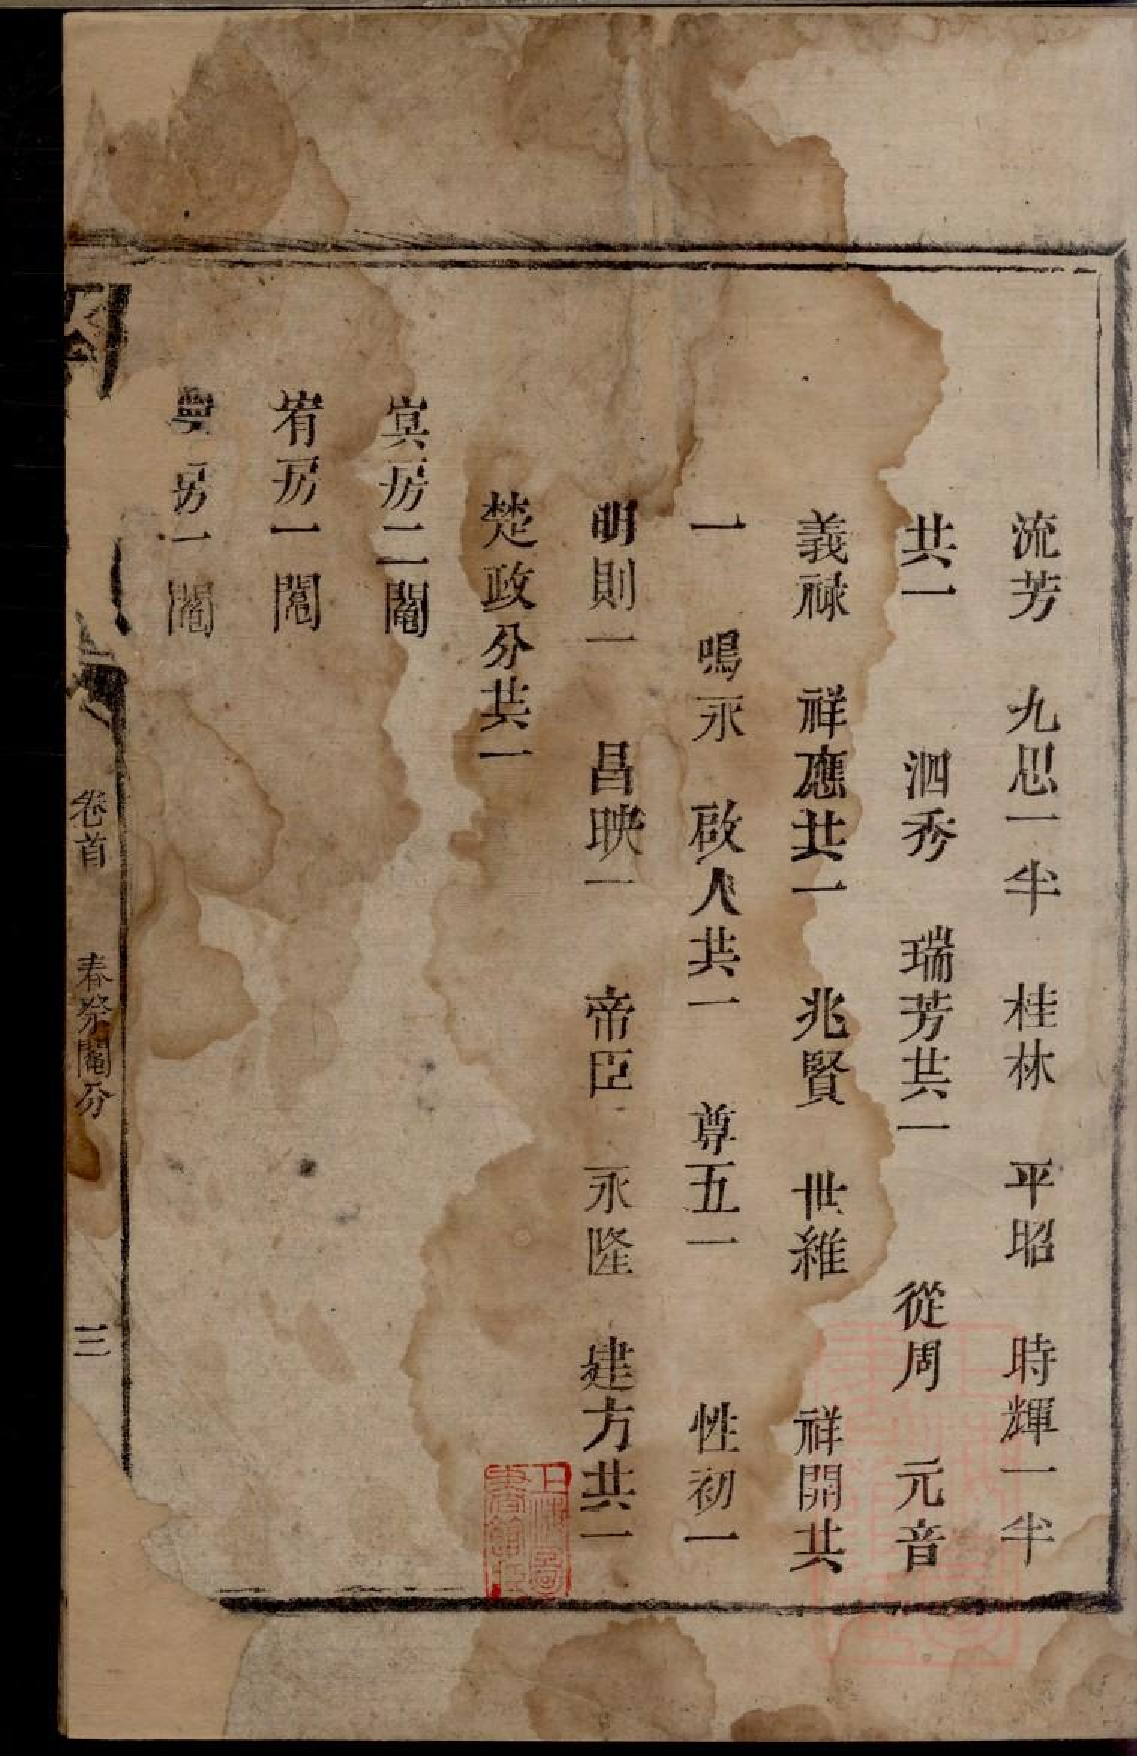 流芳 九思一半 桂林 平昭 時輝一半
共一 泗秀 瑞芳共一 從周 元音
義祿 祥應共一 兆賢 世維 祥開共
一 鳴永 啟人共一 尊五一 性初一
明則一 昌映一 帝臣 永隆 建方共一
楚政分共一
寘房二鬮
宥房一鬮
房一鬮
卷首 春祭鬮分 三